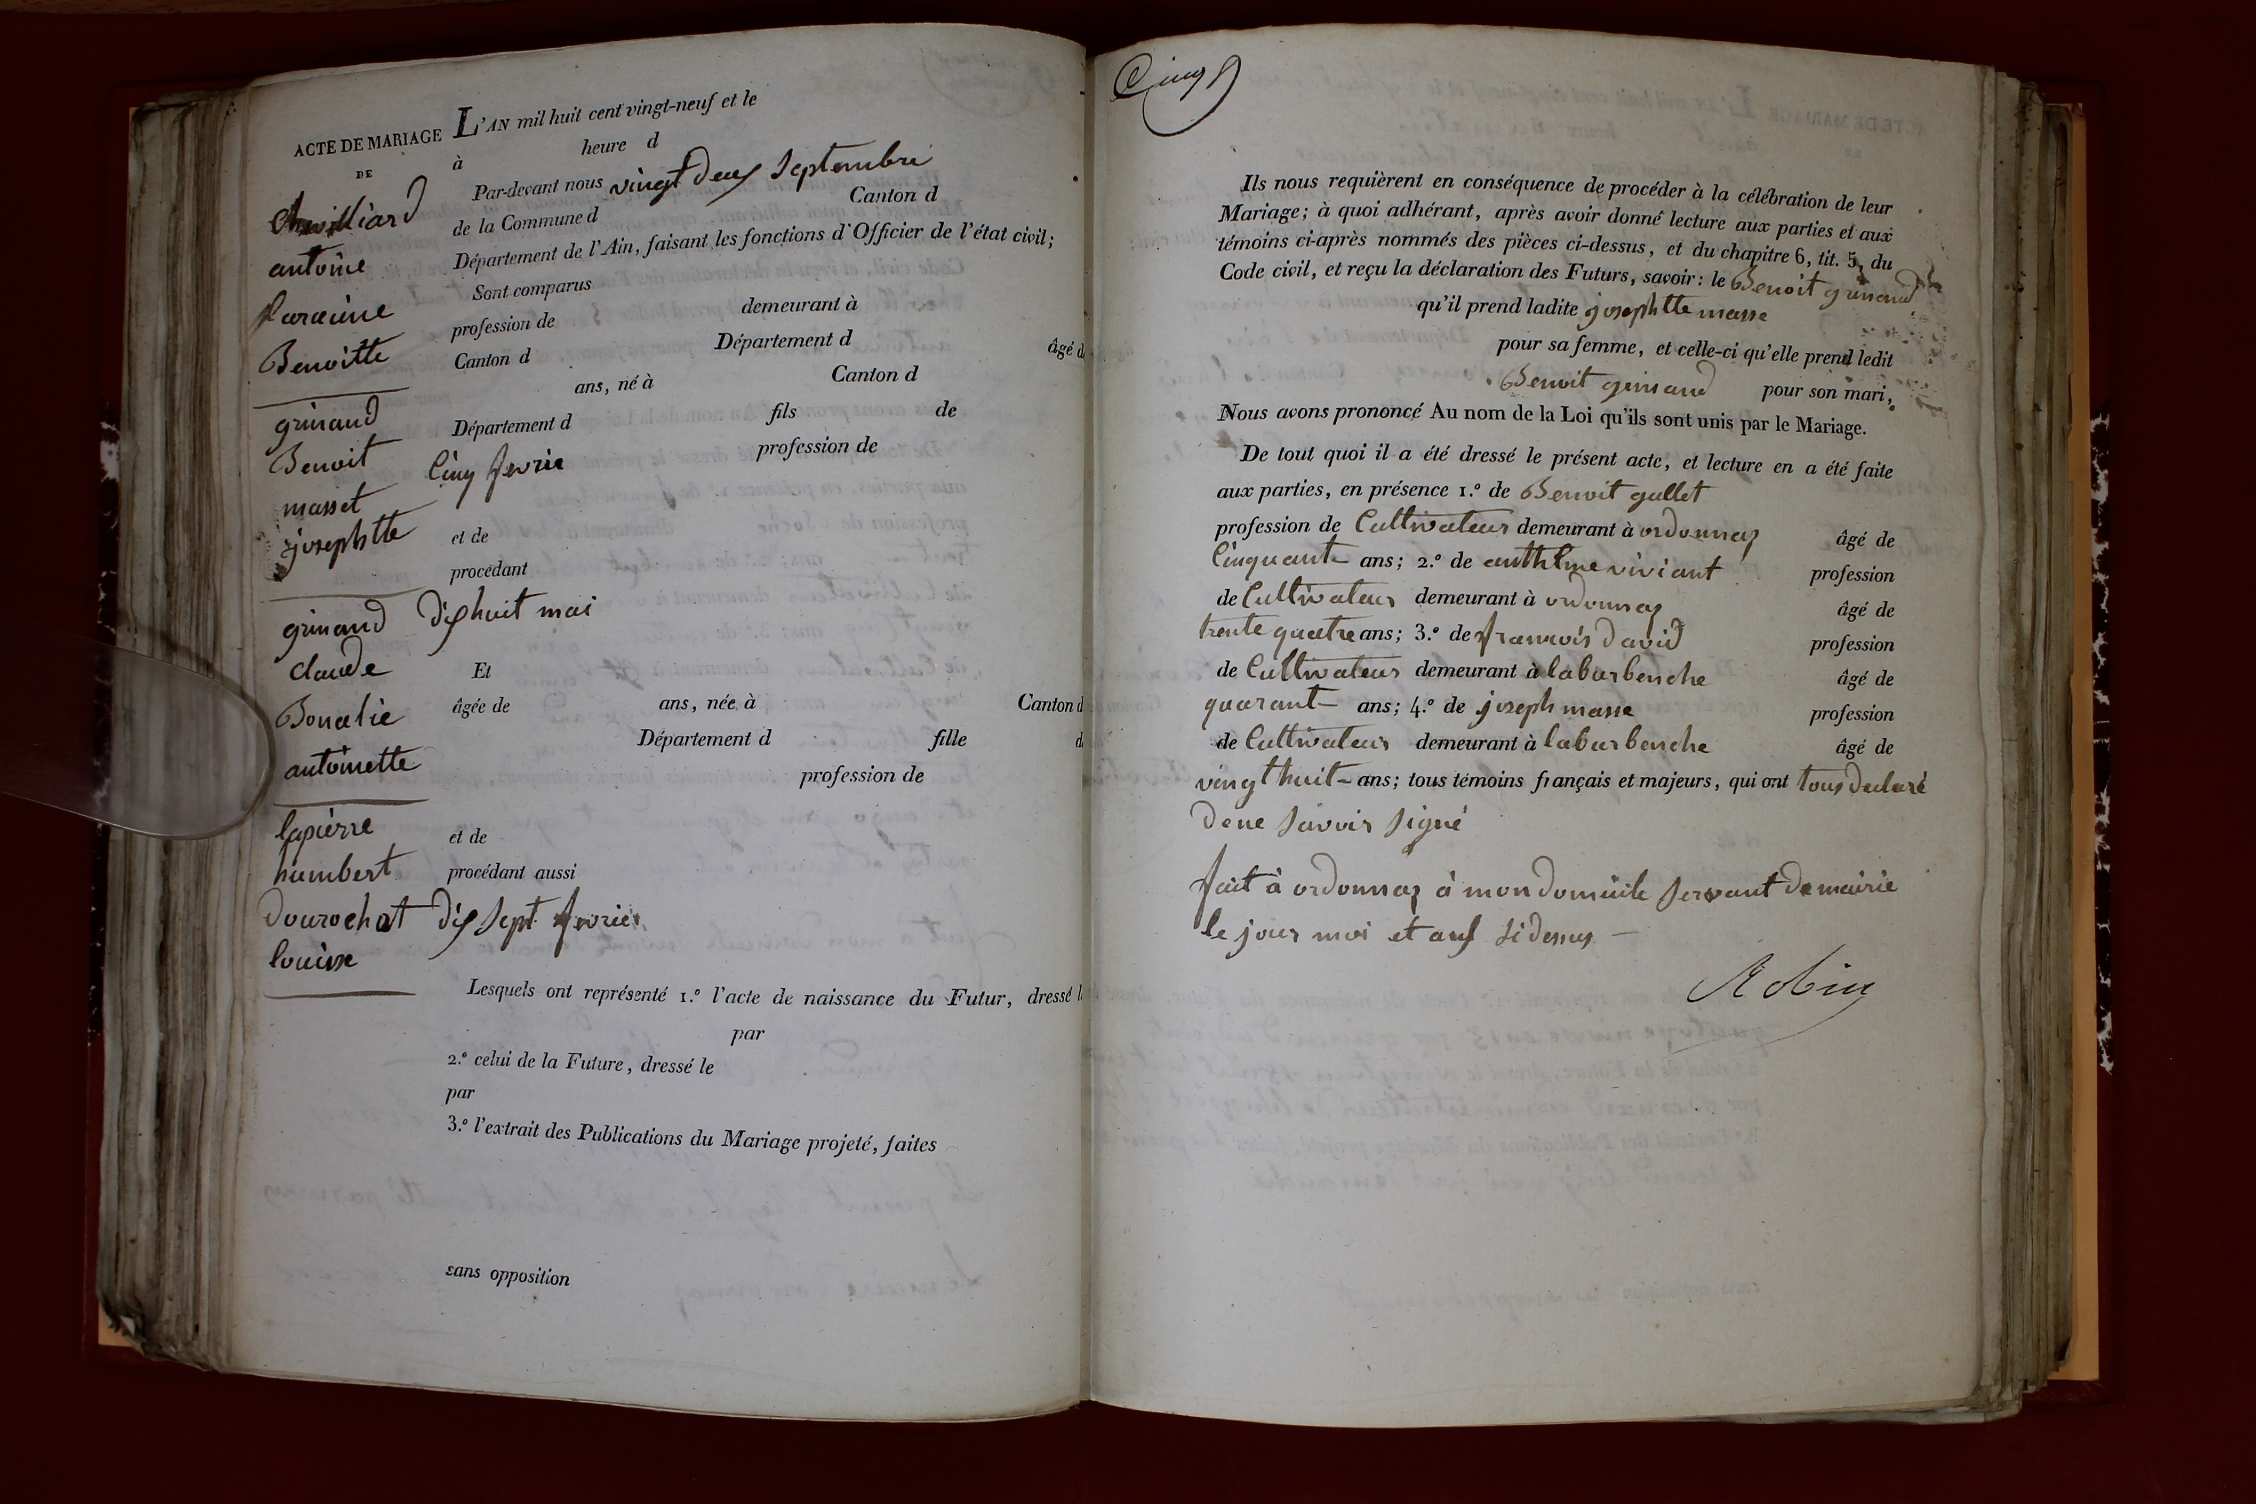 ACTE DE MARIAGE
DE
L'AN mil huit cent vingt-neuf et le
à heure d
Par-devant nous vingt deux Septembre
de la Commune d Canton d
Département de l'Ain, faisant les fonctions d'Officier de l'état civil;
Sont comparus
profession de demeurant à
Canton d Département d âgé d
ans, né à Canton d
Département d fils de
profession de
et de
procédant
Et
âgée de ans, née à Canton d
Département d fille d
profession de
et de
procédant aussi
Lesquels ont représenté 1.º l'acte de naissance du Futur, dressé l
par
2.º celui de la Future, dressé le
par
3.º l'extrait des Publications du Mariage projeté, faites
sans opposition
antoine
Benoitte
grinand
Benoit Cinq fevrie
masset
josephtte
grinand dix huit mai
claude
Bonalie
antoinette
lapierre
humbert
dourochat dix Sept fevrier
louise
Cinq
Ils nous requièrent en conséquence de procéder à la célébration de leur
Mariage; à quoi adhérant, après avoir donné lecture aux parties et aux
témoins ci-après nommés des pièces ci-dessus, et du chapitre 6, tit. 5, du
Code civil, et reçu la déclaration des Futurs, savoir: le Benoit grinand
qu'il prend ladite josephtte masse
pour sa femme, et celle-ci qu'elle prend ledit
Benoit grinand pour son mari,
Nous avons prononcé Au nom de la Loi qu'ils sont unis par le Mariage.
De tout quoi il a été dressé le présent acte, et lecture en a été faite
aux parties, en présence 1.º de Benoit gullet
profession de Cultivateur demeurant à ordonnaz âgé de
Cinquant ans; 2.º de anthelme viviant profession
de Cultivateur demeurant à ordonnaz âgé de
trente quatre ans; 3.º de francois david profession
de Cultivateur demeurant à labarbenche âgé de
quarant ans; 4.º de joseph masse profession
de Cultivateur demeurant à labarbenche âgé de
vingt huit ans; tous témoins français et majeurs, qui ont tous declaré
de ne Savoir Signé
fait à ordonnaz à mon domicile Servant de mairie
le jour moi et anf Si dessus
Robin